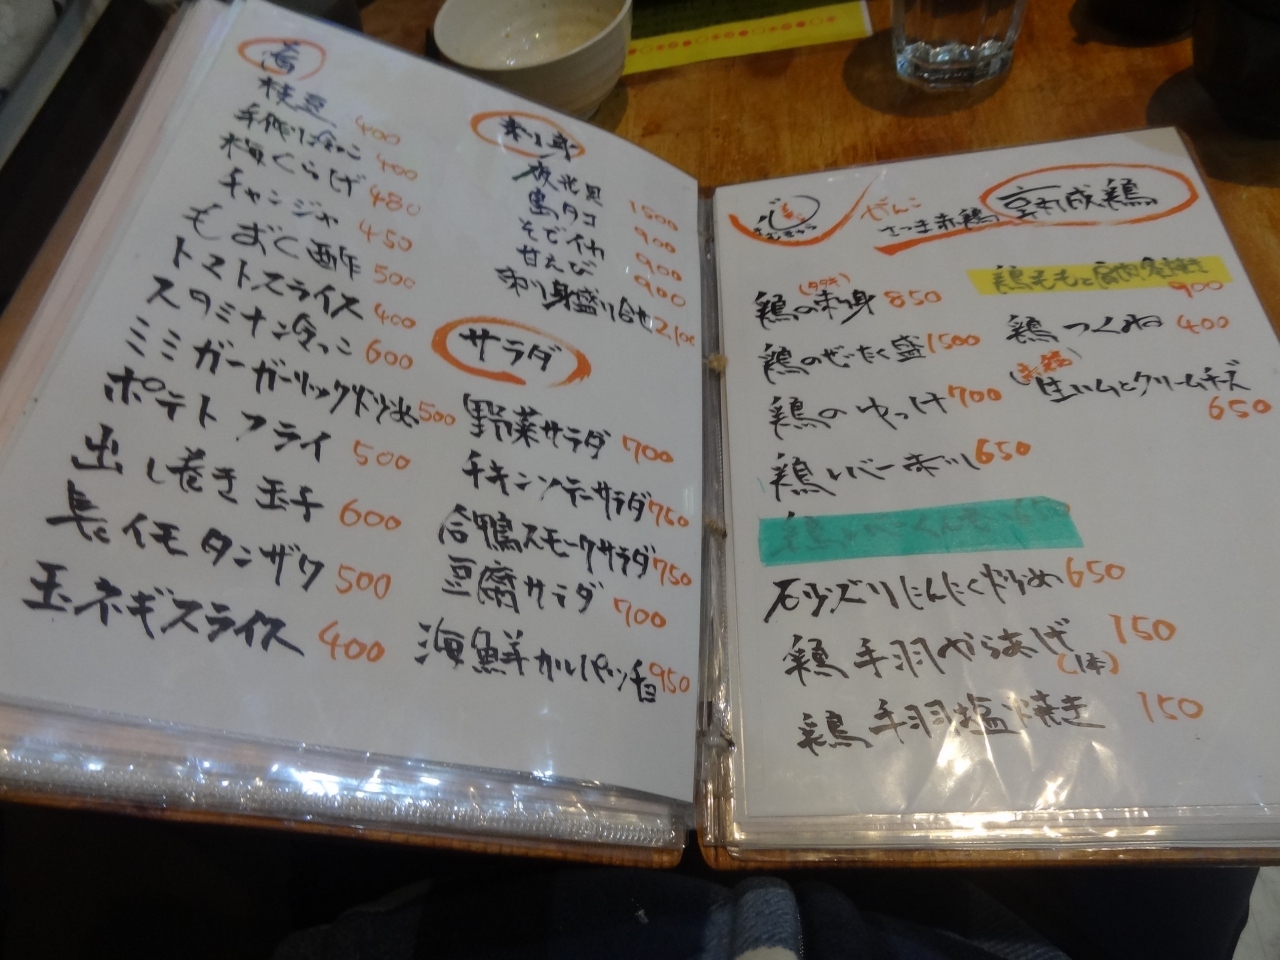 枝豆 400
400
梅くらげ 480
チャンジャ 450
もずく酢 500
トマトスライス 400
スタミナ 600
ミミガーガーリック炒め 500
ポテトフライ 500
出し巻き玉子 600
長イモタンザク 500
玉ネギスライス 400
刺身
夜光貝 1500
島タコ 900
そでイカ 900
甘えび 900
刺身盛り合せ 2,100
サラダ
野菜サラダ 700
チキンソテーサラダ 750
合鴨スモークサラダ 750
豆腐サラダ 700
海鮮カルパッチョ 950
ぜんこ
さつま赤鶏
鶏の刺身 (タタキ) 850
鶏のぜいたく盛 1500
鶏のゆっけ 700
鶏レバー刺し 650
石少ズリにんにく炒め 650
鶏手羽からあげ 150
(1本)
鶏手羽塩焼き 150
900
鶏つくね 400
生ハムとクリームチーズ
650